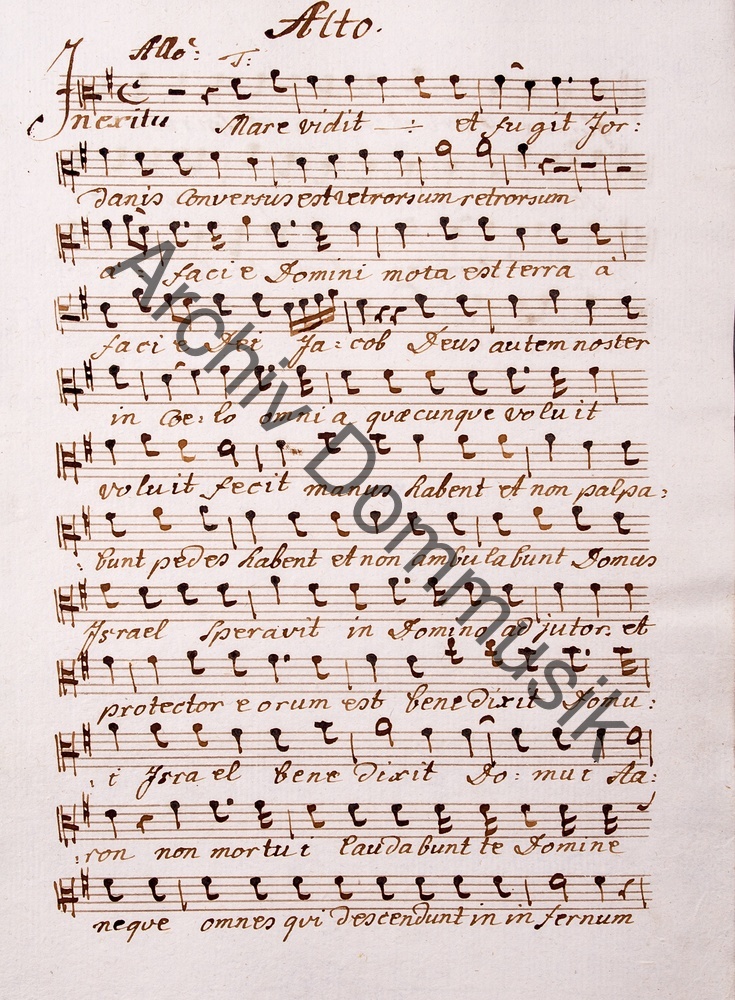 Alto.
Allo: T:
In exitu Mare vidit et fugit Jor:
danis conversus est retrorsum retrorsum
a facie Domini mota est terra à
facie Dei Ja: cob Deus autem noster
in Coe: lo omnia quæcunque voluit
voluit fecit manus habent et non palpa:
bunt pedes habent et non ambulabunt Domus
Israel Speravit in Domino adjutor. et
protector eorum est benedixit Domu:
i Israel benedixit Do: mui Aa:
:ron non mortui laudabunt te Domine
neque omnes qui descendunt in infernum
Archiv Dommusik